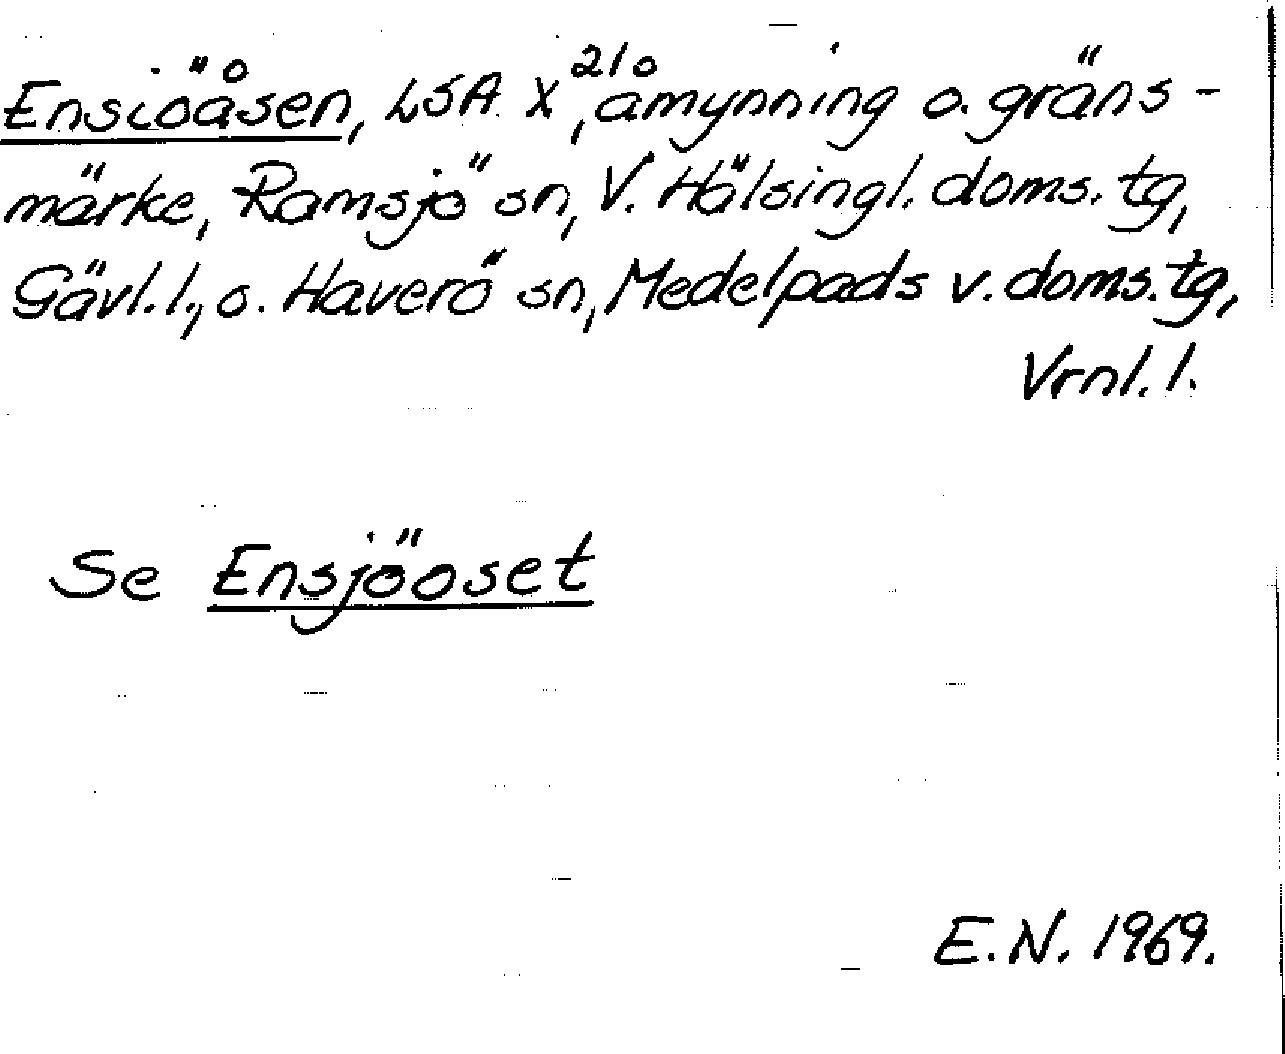 Ensiöåsen, LSA X 2/0, åmynning o. gräns-
märke, Ramsjö sn, V. Hälsingl. doms. tg,
Gävl. l., o. Haverö sn, Medelpads v. doms. tg,
Vrnl. l.
Se Ensjöoset
E.N. 1969.